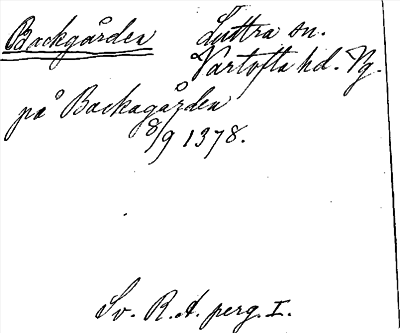 Backgården Luttra sn.
Vartofta hd. Vg.
på Backagården
8/9 1378.
Sv. R. A. perg. I.